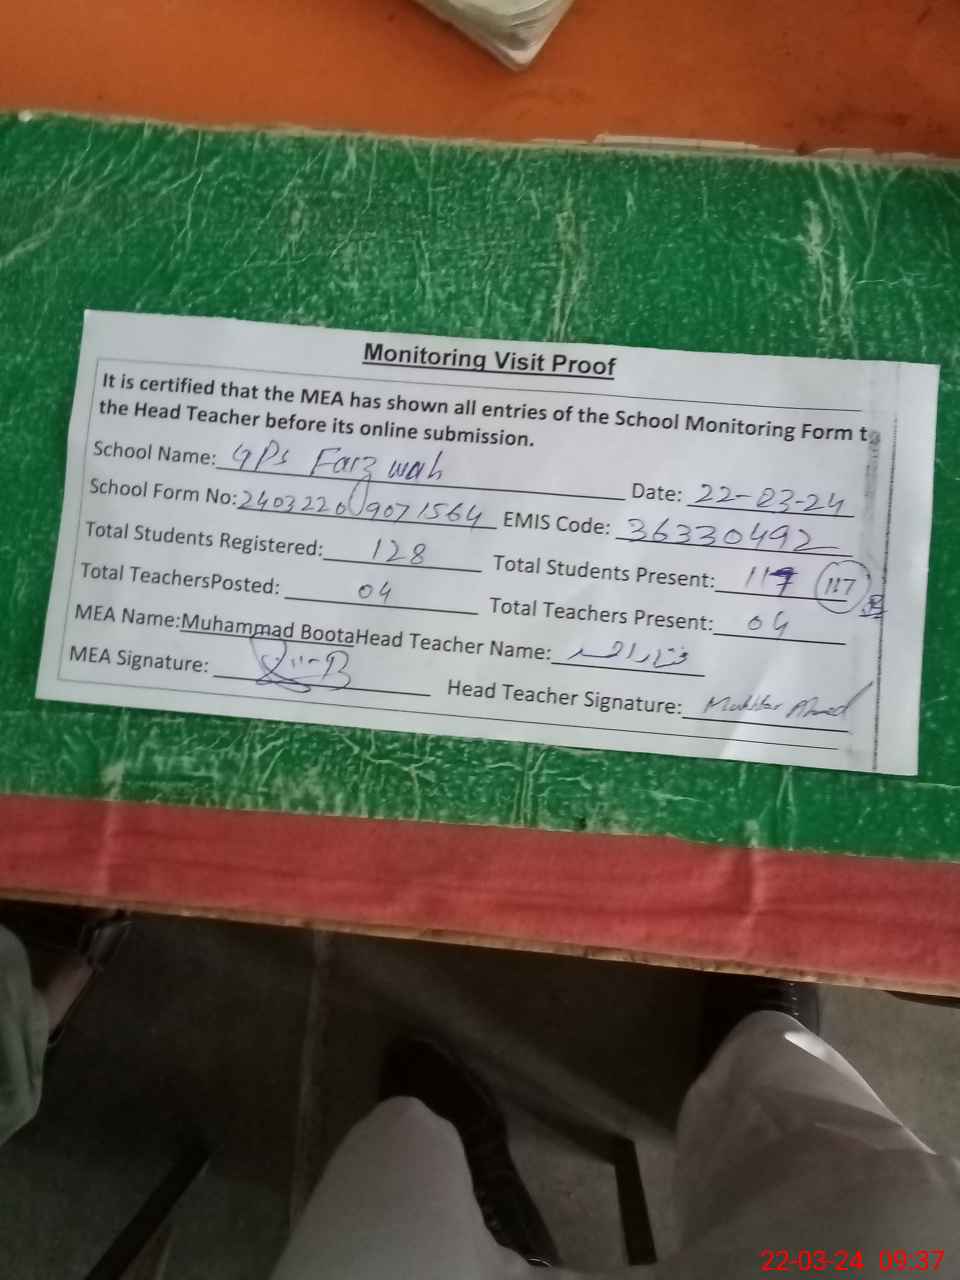 Monitoring Visit Proof
It is certified that the MEA has shown all entries of the School Monitoring Form to
the Head Teacher before its online submission.
School Name: GPS Farz wah Date: 22-03-24
School Form No: 24032209071564 EMIS Code: 36330492
Total Students Registered: 128 Total Students Present: 117 (117)
Total TeachersPosted: 04 Total Teachers Present: 04
MEA Name:Muhammad BootaHead Teacher Name: مختار احمد
MEA Signature: Head Teacher Signature: Mukhtar Ahmed
22-03-24 09:37